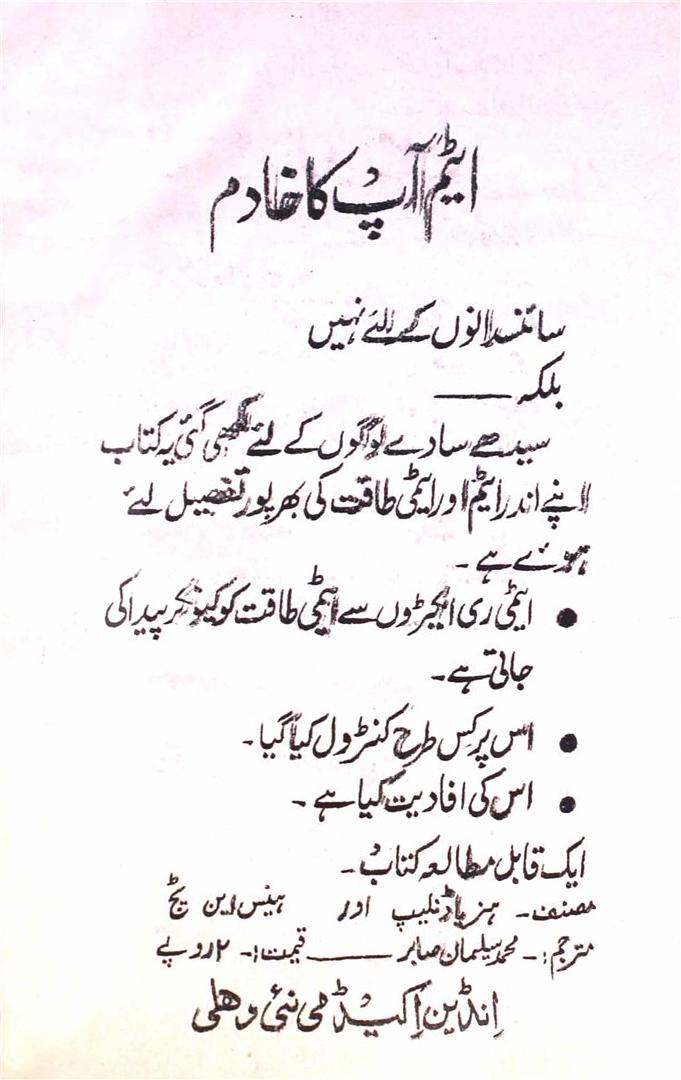 ایٹم آپ کا خادم
سائنسدانوں کے لئے نہیں
بلکہ ——
سیدھے سادے لوگوں کے لئے لکھی گئی یہ کتاب
اپنے اندر ایٹم اور ایٹمی طاقت کی بھرپور تفصیل لئے
ہوئے ہے۔
● ایٹمی ری ایکٹروں سے ایٹمی طاقت کو کیونکر پیدا کی
جاتی ہے۔
● اس پر کس طرح کنٹرول کیا گیا۔
● اس کی افادیت کیا ہے۔
ایک قابل مطالعہ کتاب۔
مصنف۔ ہنز اور ہینس این
مترجم:۔ محمد سلیمان صابر —— قیمت:۔ ۲ روپے
انڈین اکیڈمی نئی دھلی